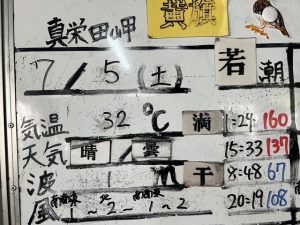 真栄田岬 黄旗
7/5(土) 若潮
気温 32℃ 満 1:24 160
天気 晴/曇 15:33 137
波 1m 干 8:48 67
風 南南東 1~2 北 ~ 南南東 1~2 20:19 108